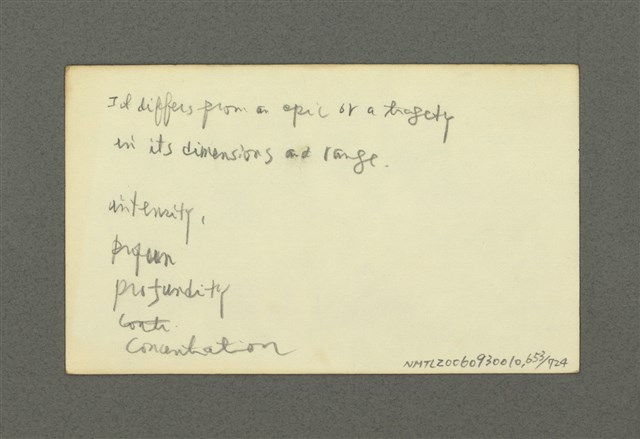 It differs from an epic or a tragety
in its dimensions and range.
intensity,
profun
profundity
Conti
Concentration
NMTL20060930010,653/724